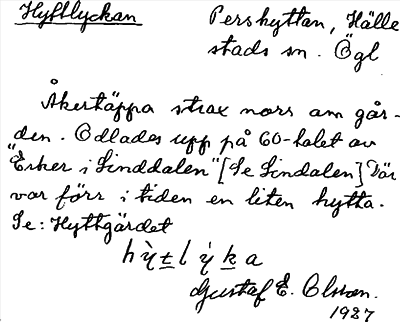 Hyttlyckan
Pershyttan, Hälle
stads sn. Ögl
Åkertäppa strax norr om går-
den. Odlades upp på 60-talet av
"Erker i Linddalen" [Se Lindalen] Där
var förr i tiden en liten hytta.
Se: Hyttgärdet
hỳt̲lýk̲a
Gustaf E. Olsson.
1927